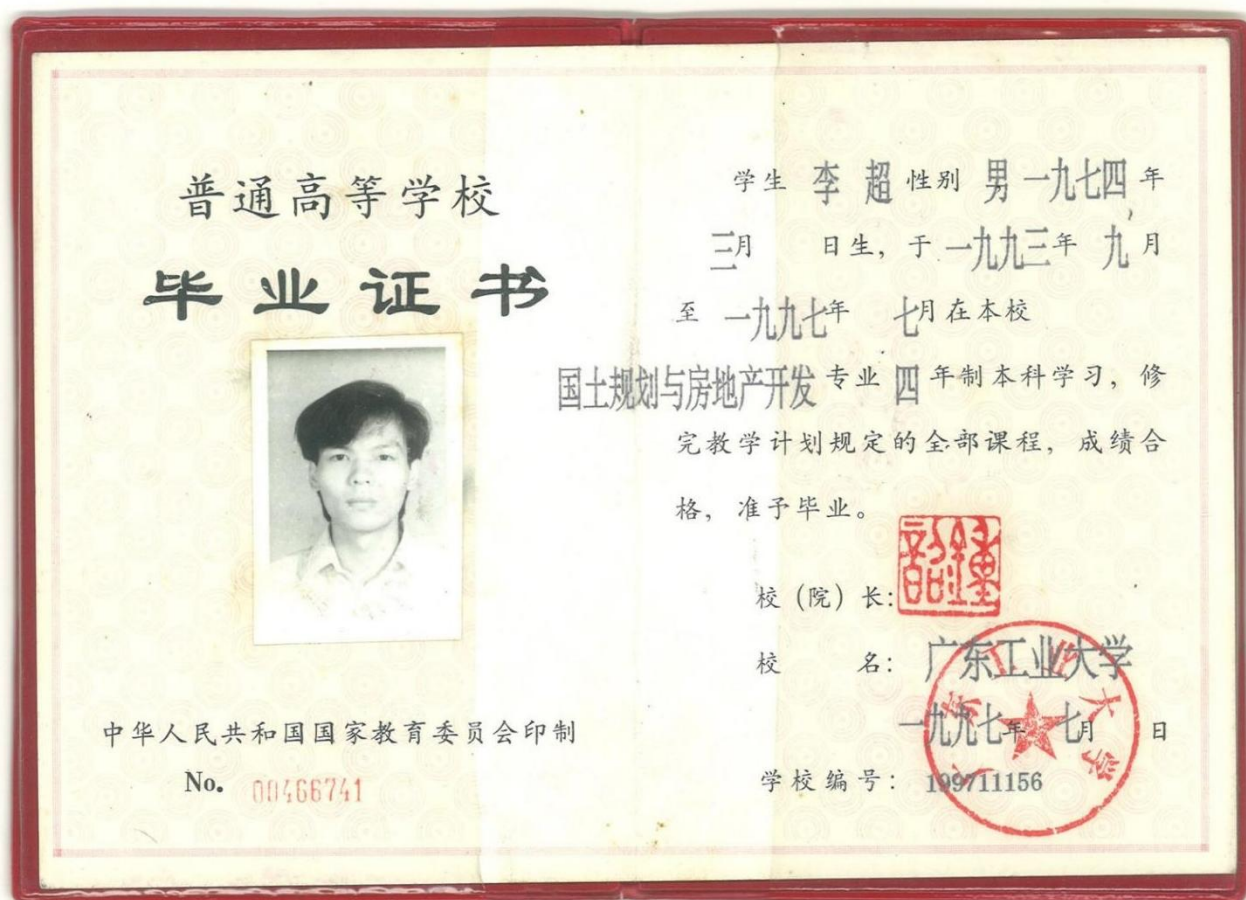 普通高等学校
毕业证书
中华人民共和国国家教育委员会印制
No. 00466741
学生 李超 性别 男 一九七四年
三月 日生，于 一九九三年 九月
至 一九九七年 七月在本校
国土规划与房地产开发 专业 四 年制本科学习，修
完教学计划规定的全部课程，成绩合
格，准予毕业。
校（院）长：
校 名：广东工业大学
一九九七年 七月 日
学校编号：199711156
广东工业大学